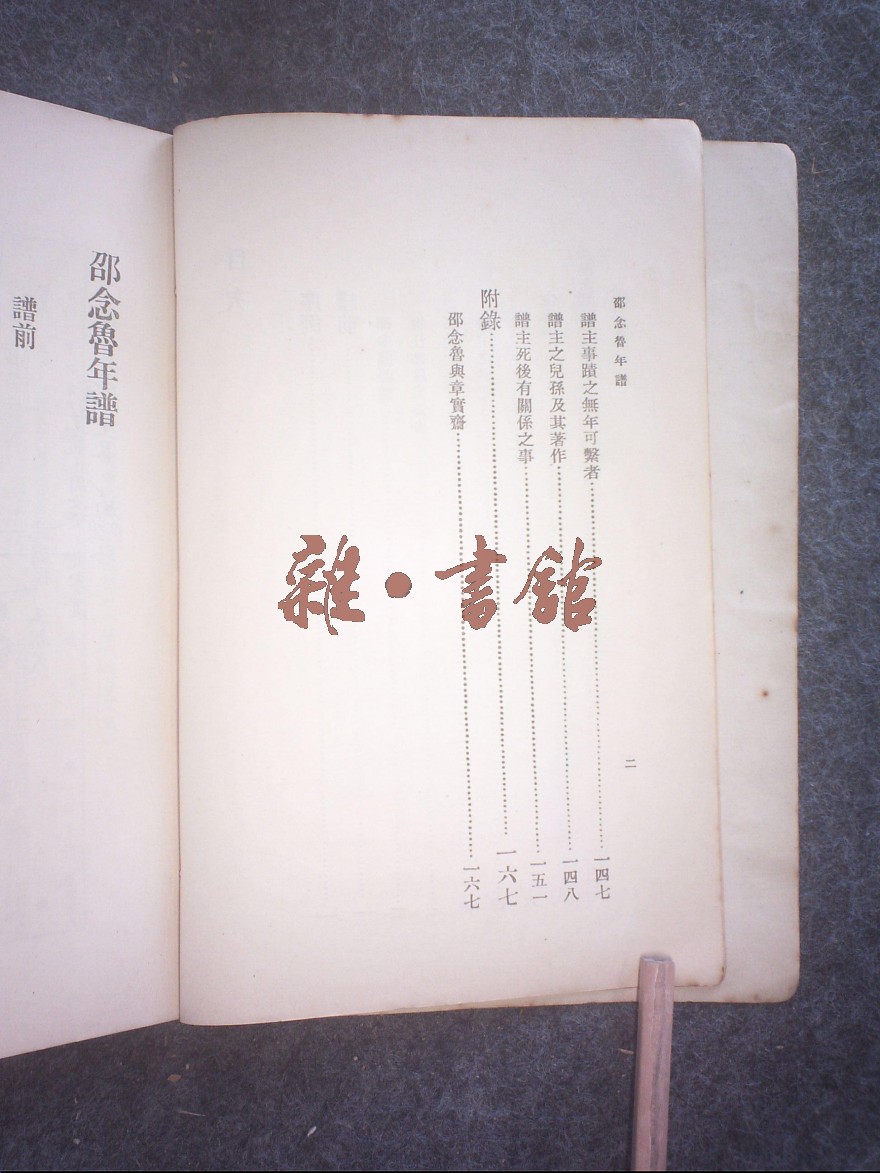 邵念魯年譜
譜主事蹟之無年可繫者……一四七
譜主之兒孫及其著作……一四八
譜主死後有關係之事……一五一
附錄……一六七
邵念魯與章實齋……一六七
二
邵念魯年譜
譜前
雜·書館